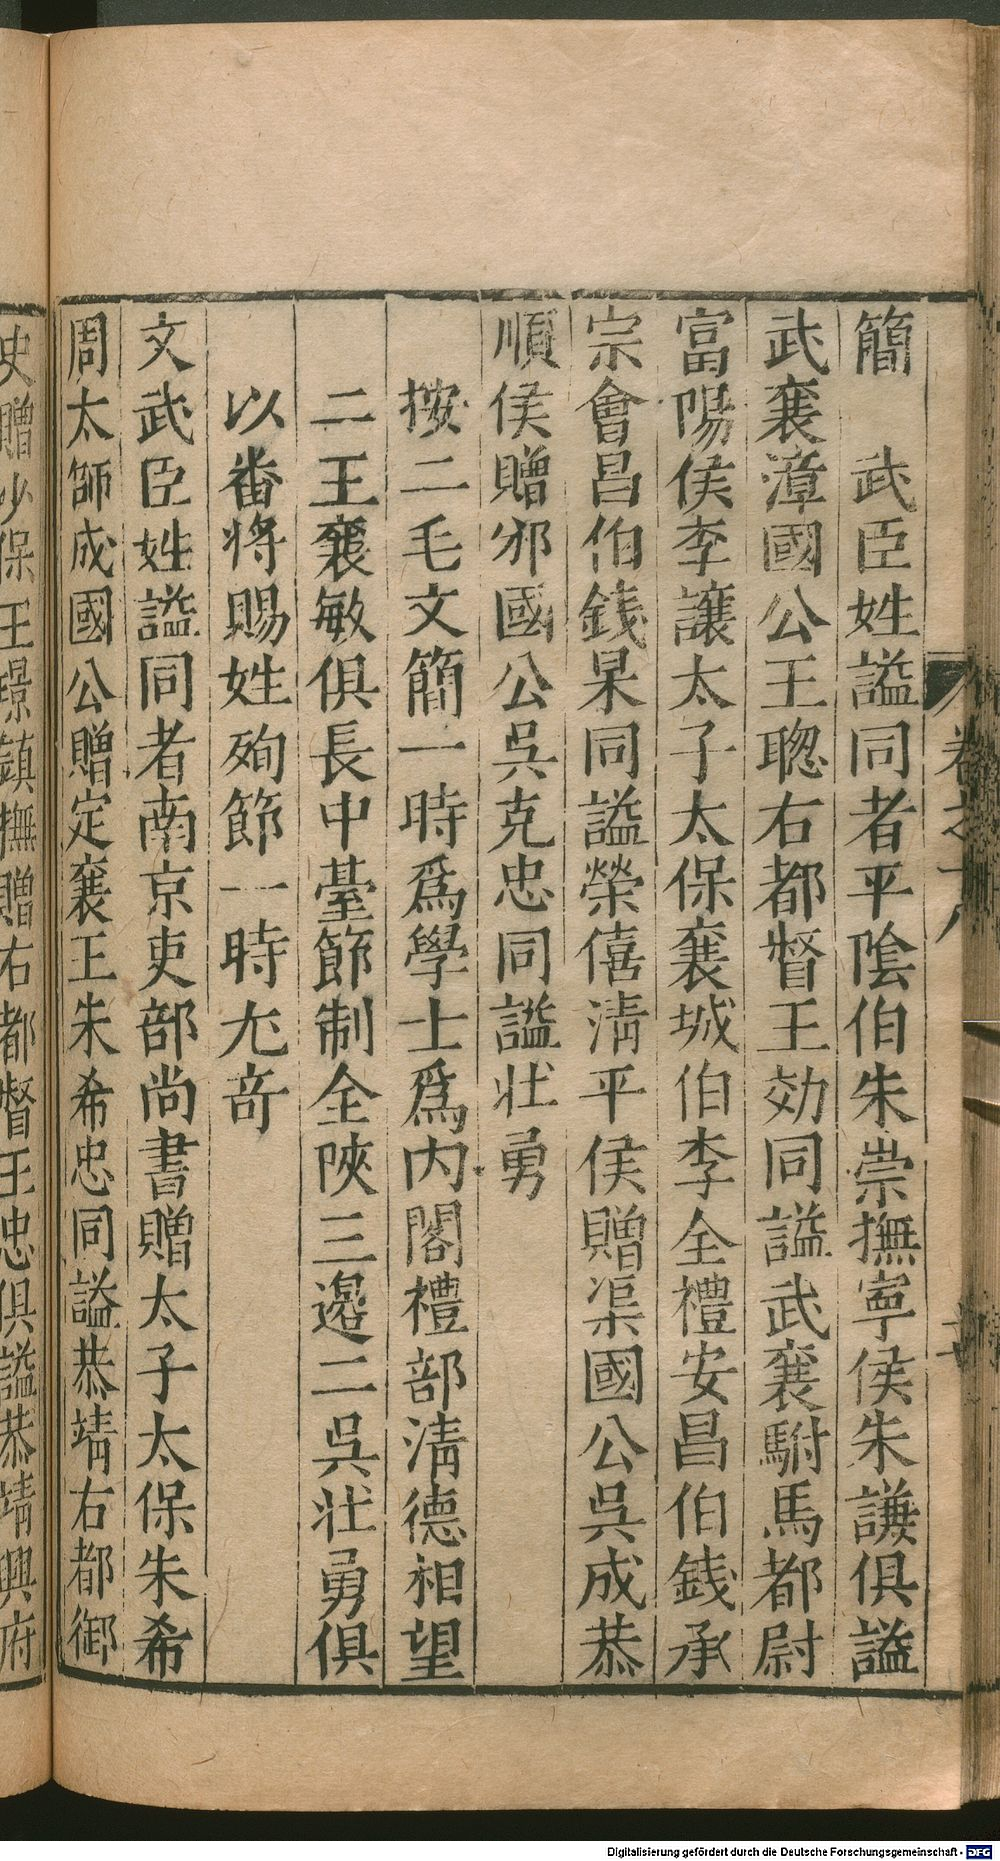 簡　武臣姓謚同者平陰伯朱崇撫寧侯朱謙俱謚
武襄漳國公王聰右都督王効同謚武襄駙馬都尉
富陽侯李讓太子太保襄城伯李全禮安昌伯錢承
宗會昌伯錢杲同謚榮僖淸平侯贈渠國公吳成恭
順侯贈邠國公吳克忠同謚壯勇
按二毛文簡一時爲學士爲内閣禮部淸德相望
二王襄敏俱長中臺節制全陝三邊二吳壯勇俱
以番將賜姓殉節一時尤奇
文武臣姓謚同者南京吏部尚書贈太子太保朱希
周太師成國公贈定襄王朱希忠同謚恭靖右都御
史贈少保王璟鎮撫贈右都督王忠俱謚恭靖興府
卷之十八
Digitalisierung gefördert durch die Deutsche Forschungsgemeinschaft - DFG